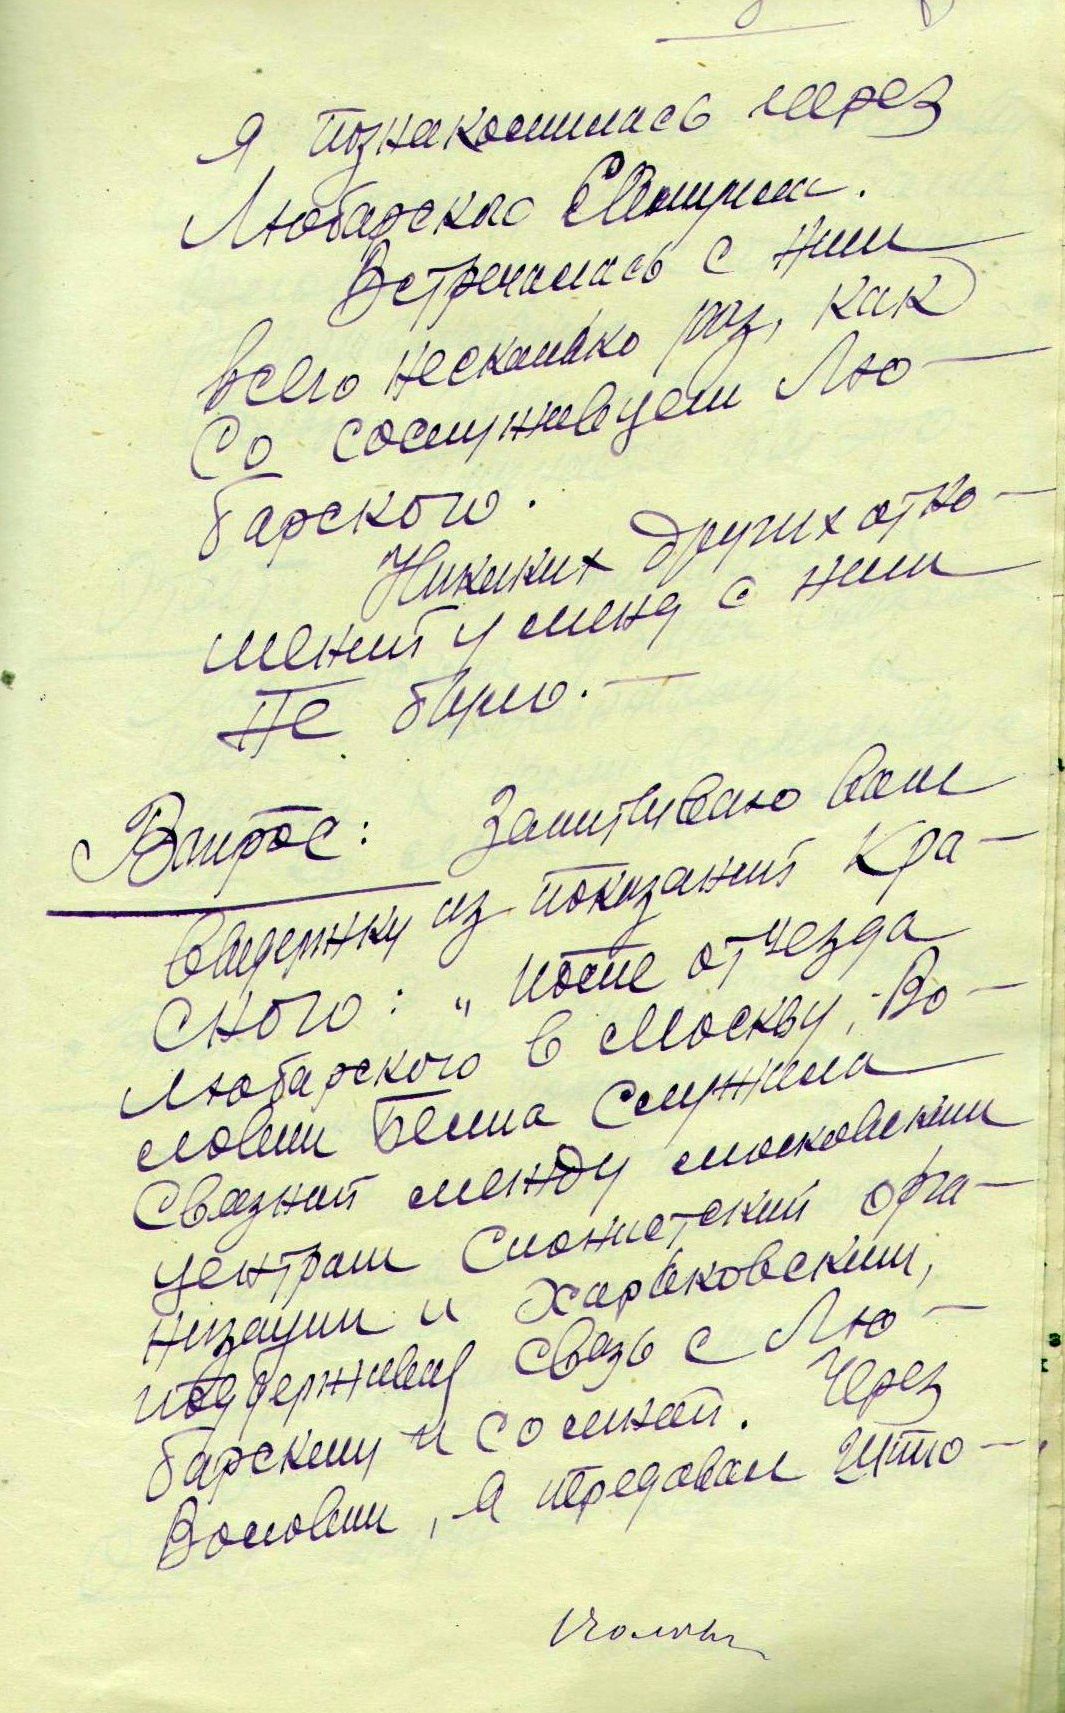 я познакомилась через
Любарского
Встречалась с ним
всего несколько раз, как
со сослуживцем Лю-
барского.
Никаких других отно-
шений у меня с ним
не было. —
Вопрос: Зачитываю вам
выдержку из показаний Кра-
ского: „после отъезда
Любарского в Москву, Во-
лович Бэлла служила
связной между московским
центром сионистской орга-
низации и Харьковским,
поддерживая связь с Лю-
барским и со мной. Через
Волович, я передавал